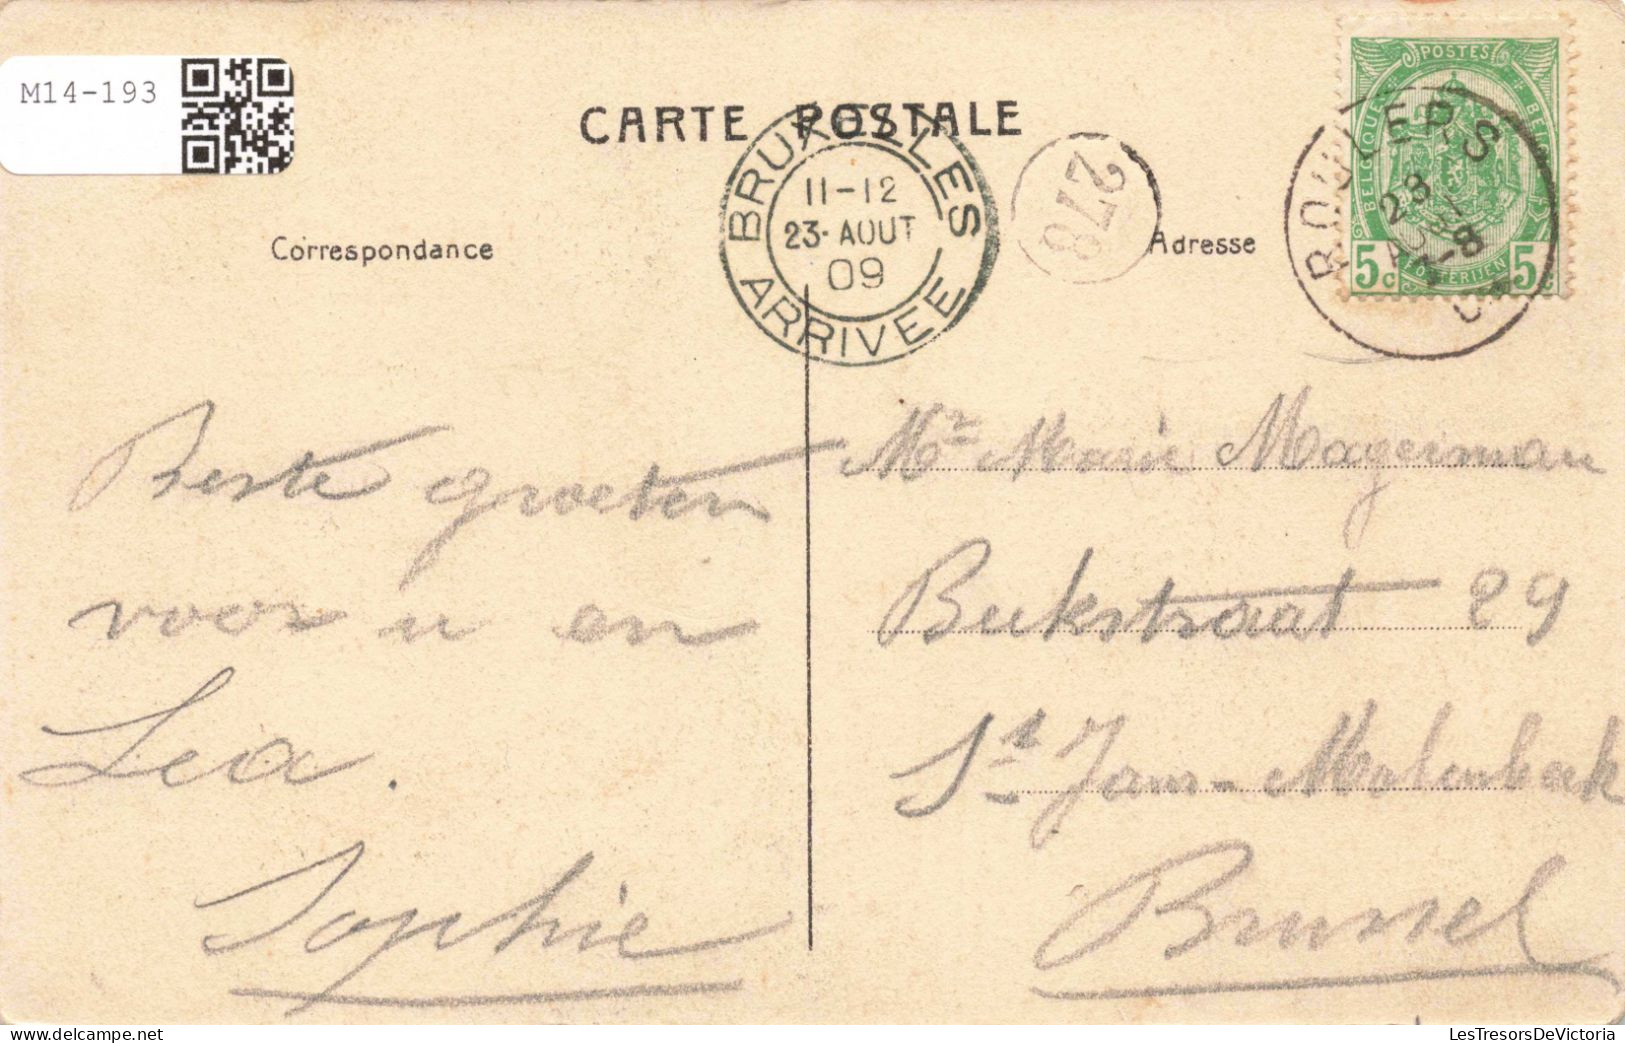 M14-193
CARTE POSTALE
BRUXELLES
11-12
23·AOUT
09
ARRIVEE
278
POSTES
BELGIQUE
BELGIË
POSTERIJEN
5c
5c
ROULERS
23
7-8
Correspondance
Adresse
Beste groeten
voor u en
Lea.
Sophie
Mr Marie Magerman
Beekstraat 29
St Jans-Molenbeek
Brussel
LesTresorsDeVictoria